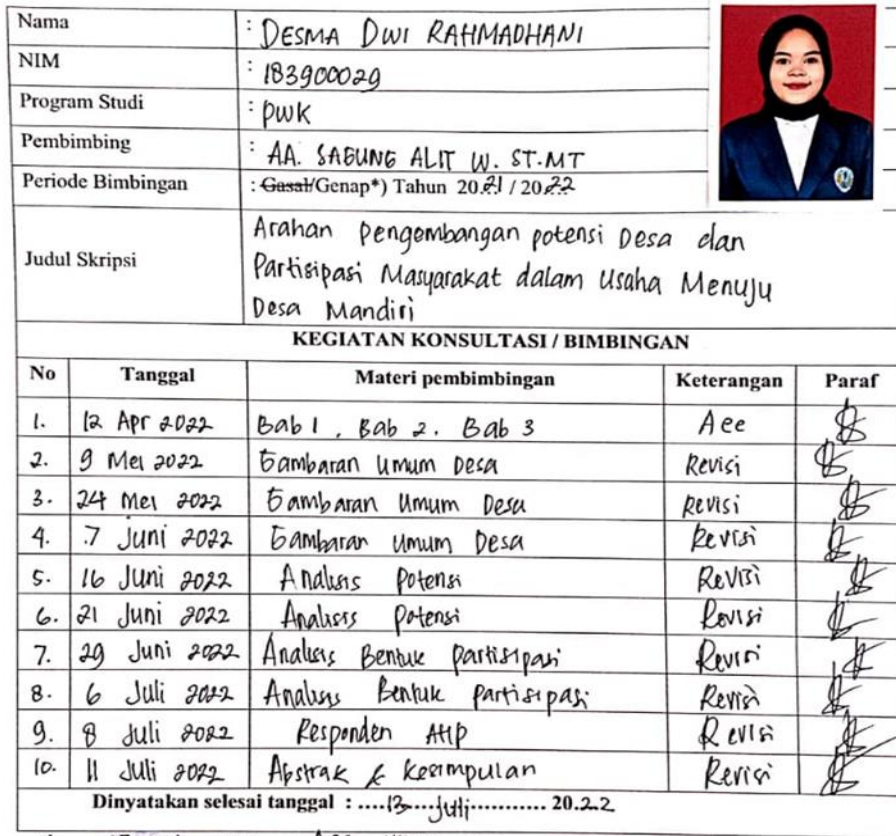 Nama : DESMA DWI RAHMADHANI
NIM : 183900029
Program Studi : PWK
Pembimbing : AA. SAGUNG ALIT W. ST.MT
Periode Bimbingan : Gasal/Genap*) Tahun 2021 / 2022
Judul Skripsi
Arahan Pengembangan potensi Desa dan
Partisipasi Masyarakat dalam Usaha Menuju
Desa Mandiri
KEGIATAN KONSULTASI / BIMBINGAN
No Tanggal Materi pembimbingan Keterangan Paraf
1. 12 Apr 2022 Bab 1, Bab 2. Bab 3 Acc
2. 9 Mei 2022 Gambaran Umum Desa Revisi
3. 24 Mei 2022 Gambaran Umum Desa Revisi
4. 7 Juni 2022 Gambaran Umum Desa Revisi
5. 16 Juni 2022 Analisis Potensi Revisi
6. 21 Juni 2022 Analisis Potensi Revisi
7. 29 Juni 2022 Analisis Bentuk partisipasi Revisi
8. 6 Juli 2022 Analisis Bentuk partisipasi Revisi
9. 8 Juli 2022 Responden AHP Revisi
10. 11 Juli 2022 Abstrak & Kesimpulan Revisi
Dinyatakan selesai tanggal : .....13.....Juli.............. 20.22